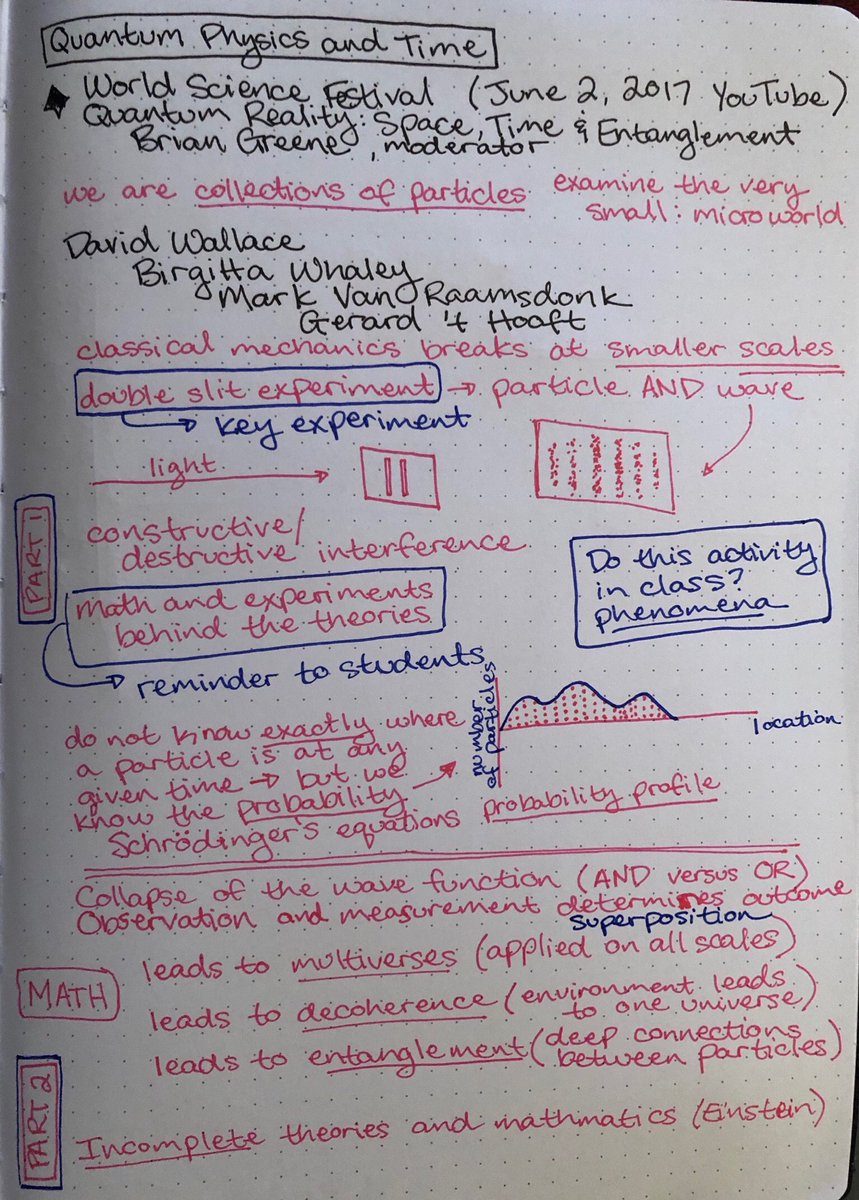 Quantum Physics and Time
World Science Festival (June 2, 2017 YouTube)
Quantum Reality: Space, Time & Entanglement
Brian Greene, moderator
we are collections of particles
examine the very
small: microworld
David Wallace
Birgitta Whaley
Mark Van Raamsdonk
Gerard 't Hooft
classical mechanics breaks at smaller scales
double slit experiment → particle AND wave
key experiment
light
constructive/
destructive interference
PART 1
Do this activity
in class?
phenomena
math and experiments
behind the theories
reminder to students
do not know exactly where
a particle is at any
given time → but we
know the probability
Schrödinger's equations
number
of particles
location
probability profile
Collapse of the wave function (AND versus OR)
Observation and measurement determines outcome
superposition
leads to multiverses (applied on all scales)
MATH
leads to decoherence (environment leads
to one universe)
leads to entanglement (deep connections
between particles)
PART 2
Incomplete theories and mathmatics (Einstein)